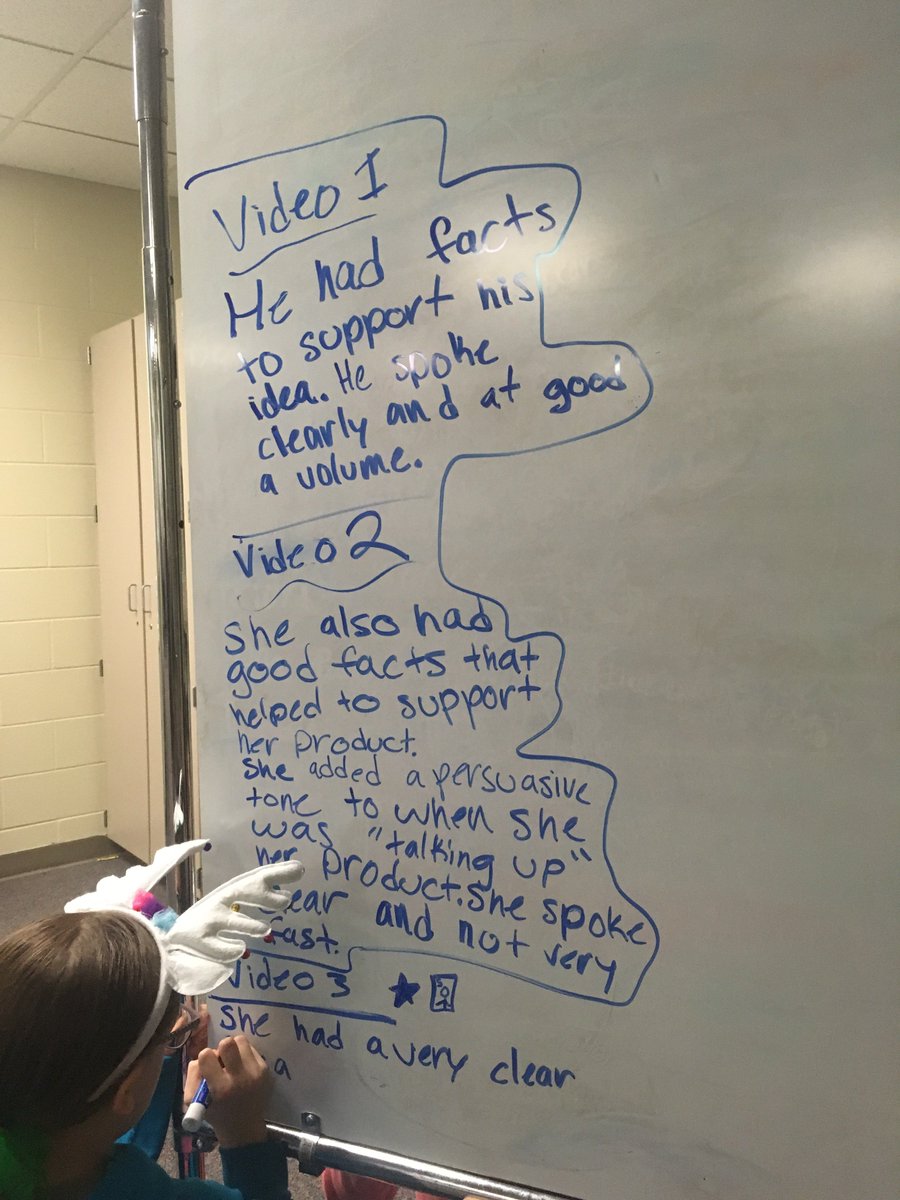 Video 1
He had facts
to support his
idea. He spoke
clearly and at good
a volume.
Video 2
She also had
good facts that
helped to support
her product.
She added a persuasive
tone to when she
was "talking up"
her product. She spoke
and not very
fast.
Video 3
She had a very clear
a